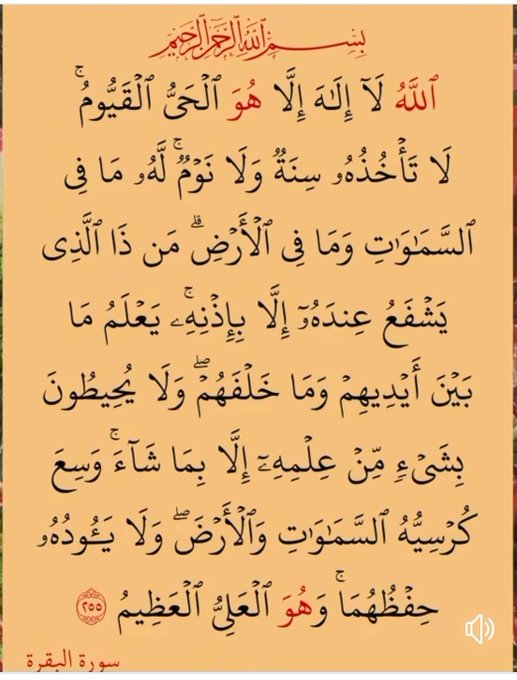 بِسْمِ ٱللَّهِ ٱلرَّحْمَٰنِ ٱلرَّحِيمِ
ٱللَّهُ لَآ إِلَٰهَ إِلَّا هُوَ ٱلْحَىُّ ٱلْقَيُّومُ ۚ
لَا تَأْخُذُهُۥ سِنَةٌ وَلَا نَوْمٌ ۚ لَّهُۥ مَا فِى
ٱلسَّمَٰوَٰتِ وَمَا فِى ٱلْأَرْضِ ۗ مَن ذَا ٱلَّذِى
يَشْفَعُ عِندَهُۥٓ إِلَّا بِإِذْنِهِۦ ۚ يَعْلَمُ مَا
بَيْنَ أَيْدِيهِمْ وَمَا خَلْفَهُمْ ۖ وَلَا يُحِيطُونَ
بِشَىْءٍ مِّنْ عِلْمِهِۦٓ إِلَّا بِمَا شَآءَ ۚ وَسِعَ
كُرْسِيُّهُ ٱلسَّمَٰوَٰتِ وَٱلْأَرْضَ ۖ وَلَا يَـُٔودُهُۥ
حِفْظُهُمَا ۚ وَهُوَ ٱلْعَلِىُّ ٱلْعَظِيمُ ٢٥٥
سورة البقرة